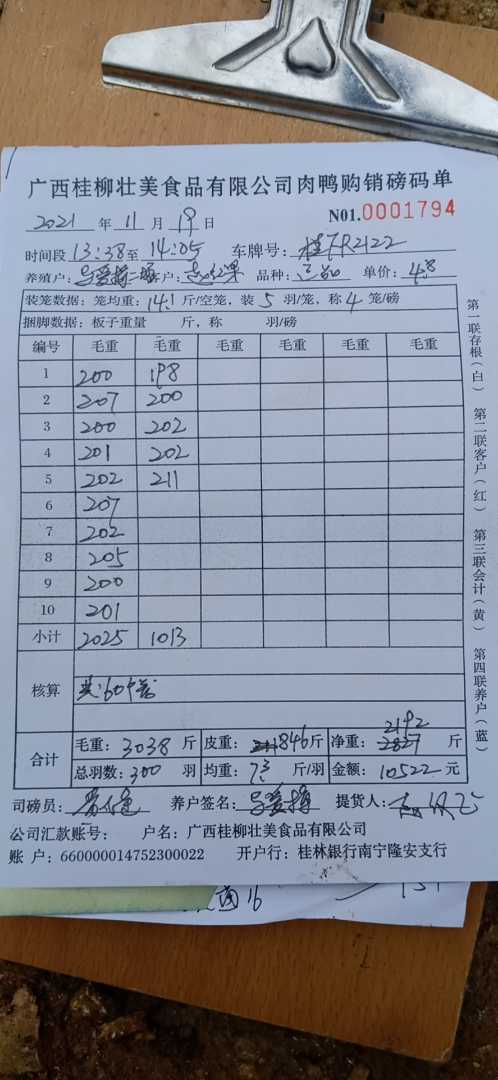 广西桂柳壮美食品有限公司肉鸭购销磅码单
2021 年 11 月 19 日 N01.0001794
时间段 13:38 至 14:05 车牌号: 桂FR2122
养殖户: 客户: 品种: 单价: 4.8
装笼数据: 笼均重: 14.1 斤/空笼, 装 5 羽/笼, 称 4 笼/磅
捆脚数据: 板子重量 斤, 称 羽/磅
编号 毛重 毛重 毛重 毛重 毛重 毛重
1 200 198
2 207 200
3 200 202
4 201 202
5 202 211
6 207
7 202
8 205
9 200
10 201
小计 2025 1013
核算 共:60个笼
合计 毛重: 3038 斤 皮重: 846 斤 净重: 2192 斤
总羽数: 300 羽 均重: 7.3 斤/羽 金额: 10522 元
司磅员: 养户签名: 提货人:
公司汇款账号: 户名: 广西桂柳壮美食品有限公司
账 户: 660000014752300022 开户行: 桂林银行南宁隆安支行
第一联存根(白) 第二联客户(红) 第三联会计(黄) 第四联养户(蓝)